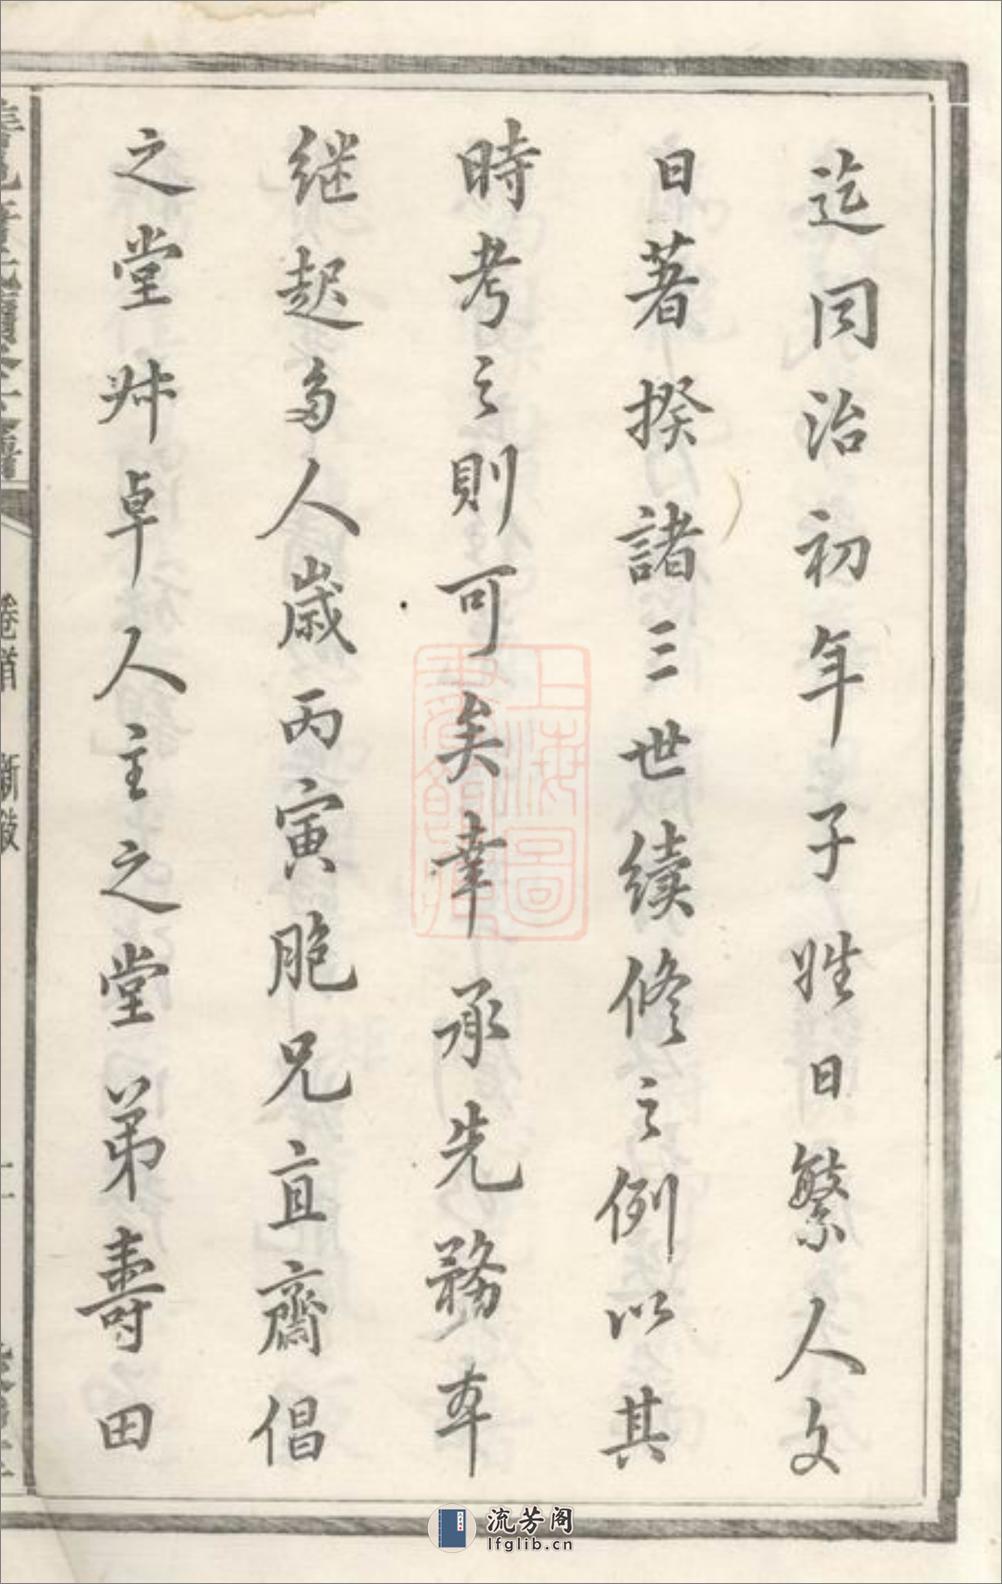 迄同治初年子姓日繁人文
日著揆諸三世續修之例以其
時考之則可矣幸承先務本
継起多人歲丙寅胞兄直齋倡
之堂姪卓人主之堂弟壽田
卷首
新敘
上海圖書館藏
流芳阁
lfglib.cn